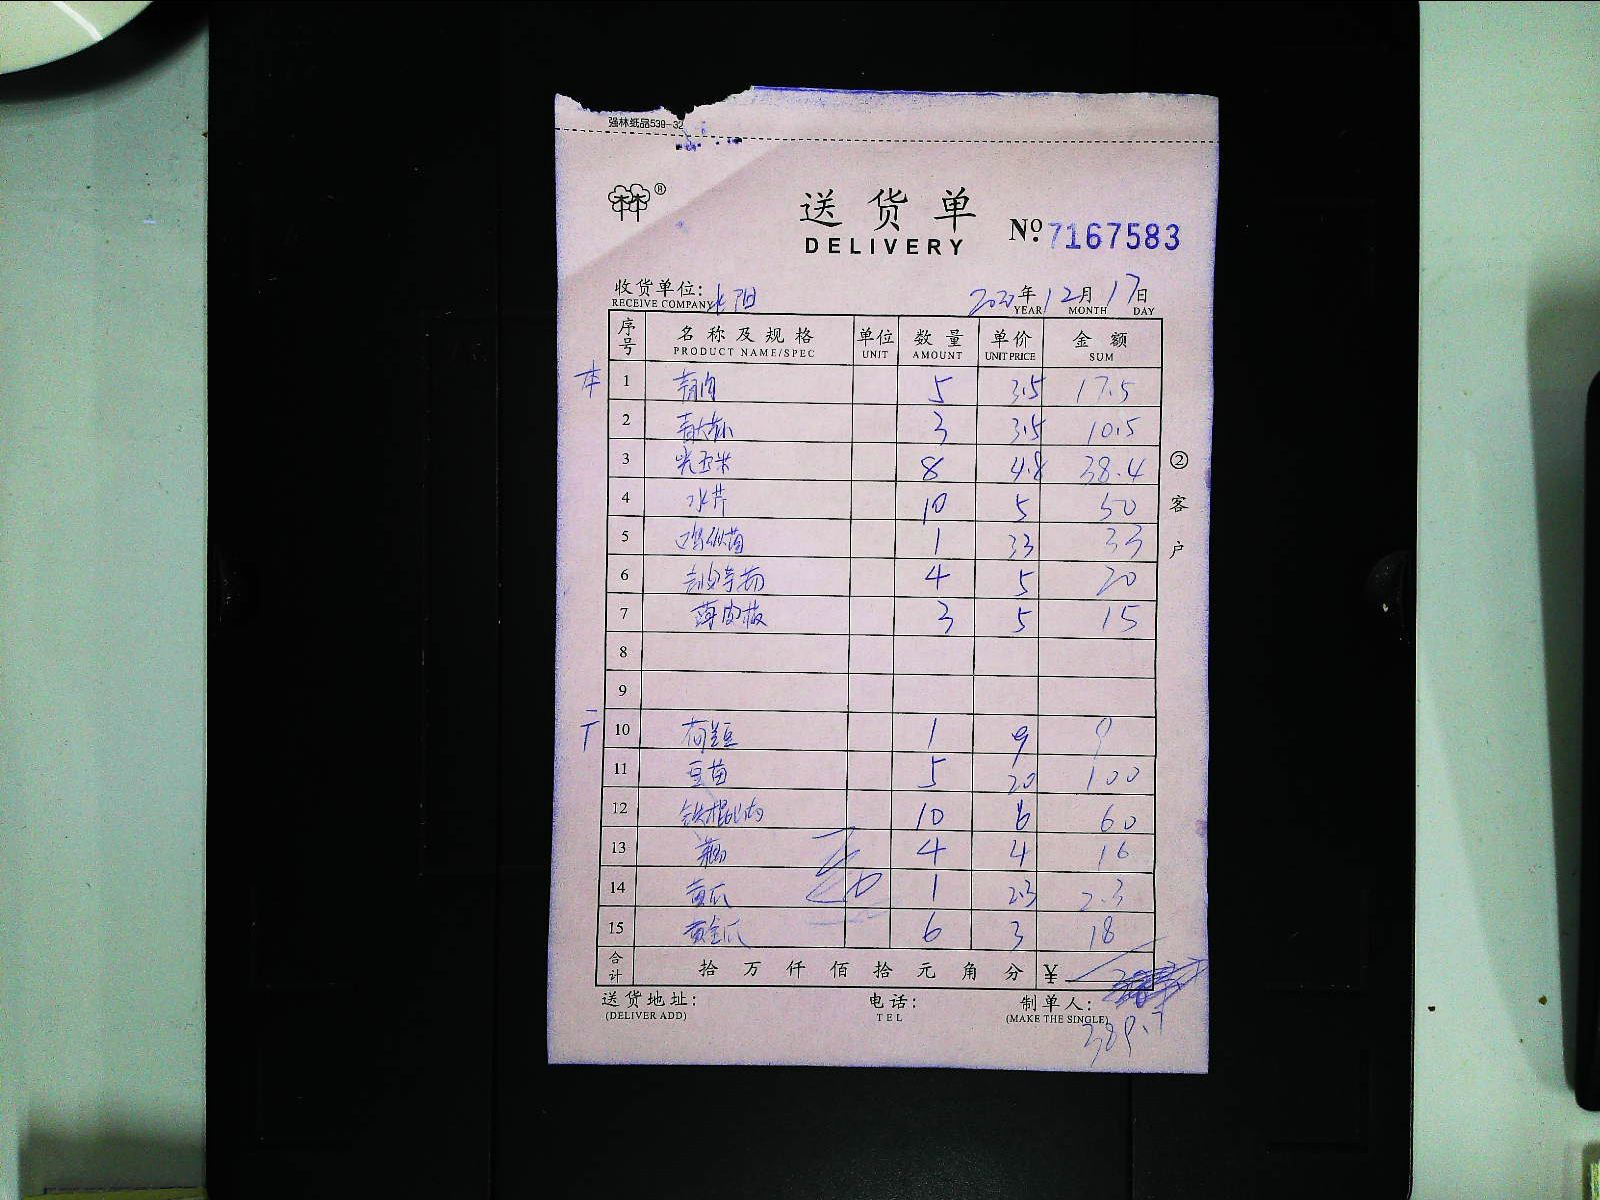 强林纸品539-32
林林®
送货单
DELIVERY
No. 7167583
收货单位: 长阳
RECEIVE COMPANY
2020年12月17日
YEAR MONTH DAY
序号 名称及规格 单位 数量 单价 金额
PRODUCT NAME/SPEC UNIT AMOUNT UNIT PRICE SUM
本 1 5 3.5 17.5
2 3 3.5 10.5
3 光玉米 8 4.8 38.4
4 水芹 10 5 50
5 鸡枞菌 1 33 33
6 4 5 20
7 3 5 15
8
9
10 荷兰豆 1 9 9
11 豆苗 5 20 100
12 铁棍山药 10 6 60
13 4 4 16
14 黄瓜 1 2.3 2.3
15 黄金瓜 6 3 18
合计 拾万仟佰拾元角分 ¥
②客户
送货地址: 电话: 制单人:
(DELIVER ADD) TEL (MAKE THE SINGLE)
389.7